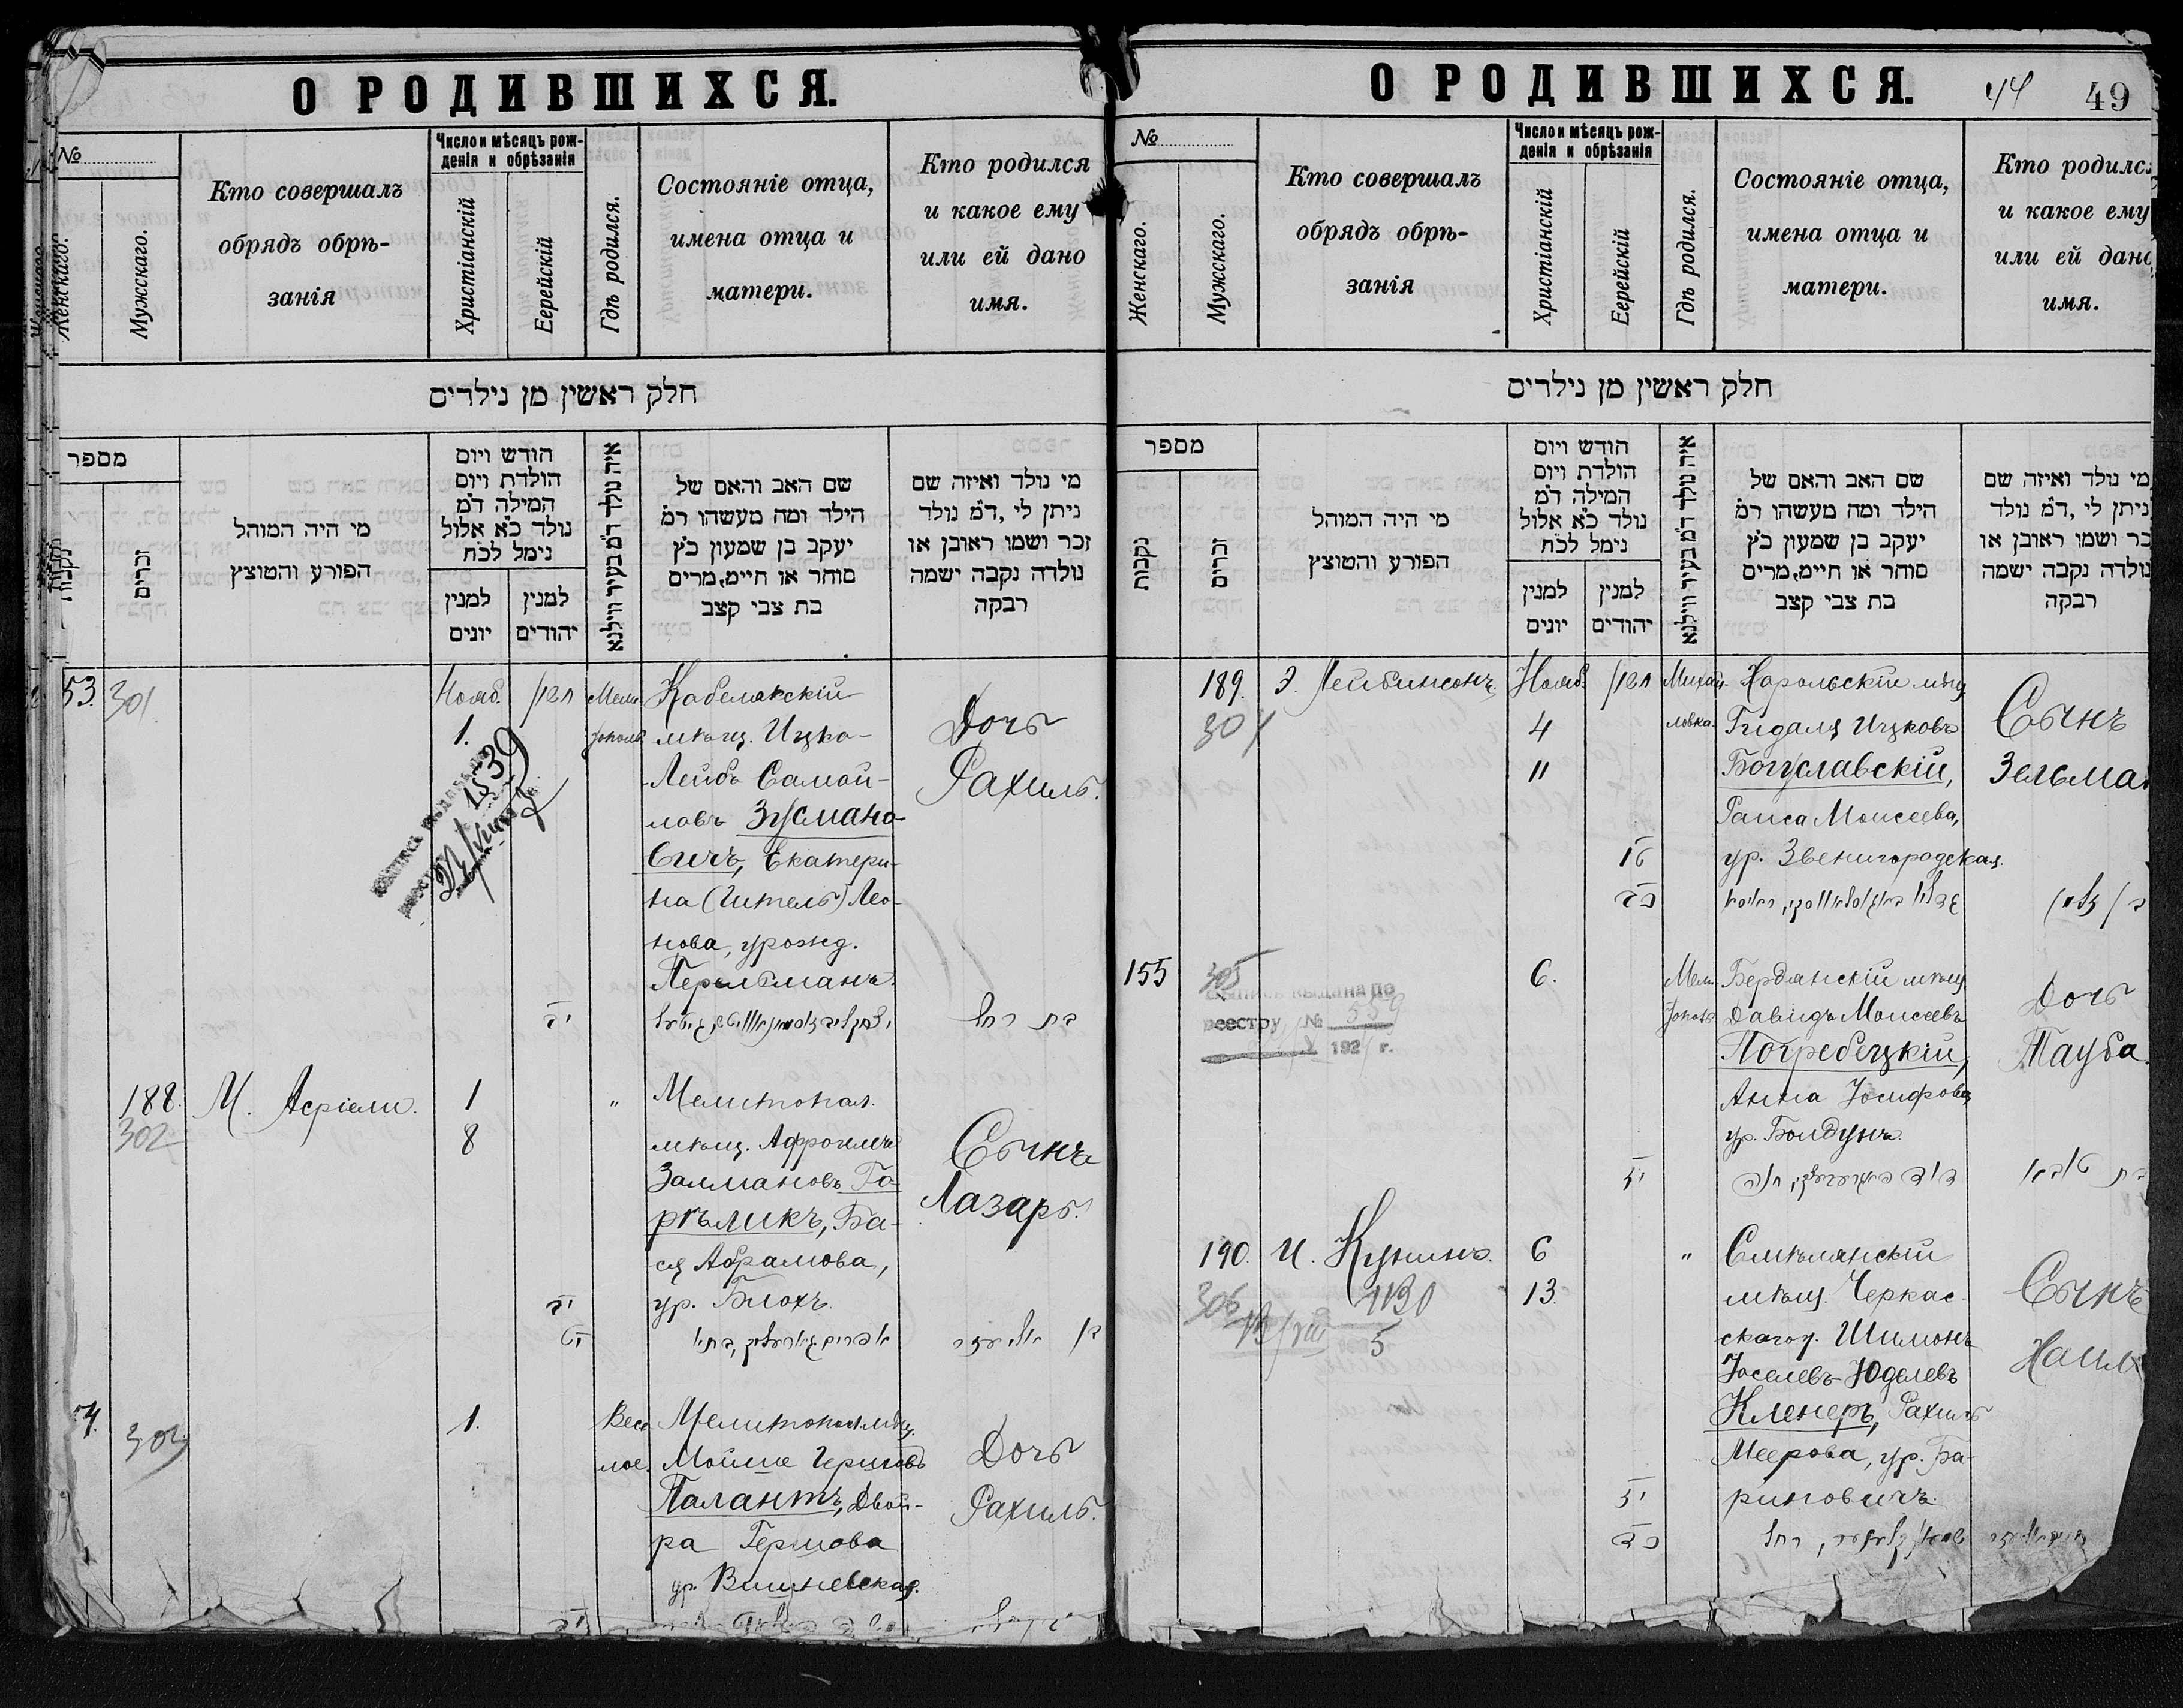 О РОДИВШИХСЯ.
№
Женскаго.
Мужскаго.
Кто совершалъ
обрядъ обрѣ-
занія
Число и мѣсяцъ рож-
денія и обрѣзанія
Христіанскій
Еерейскій
Гдѣ родился.
Состояніе отца,
имена отца и
матери.
Кто родился
и какое ему
или ей дано
имя.
חלק ראשין מן נילדים
מספר
נקבות
זכרים
מי היה המוהל
הפורע והטוצץ
הודש ויום
הולדת ויום
המילה ד״מ
נולד כ״א אלול
נימל לכ״ח
למנין
יונים
למנין
יהודים
איה נולד ד״מ בעיר ווילנא
שם האב והאם של
הילד ומה מעשהו ר״מ
יעקב בן שמעון כ״ץ
סוחר או חיימ,מרים
בת צבי קצב
מי נולד ואיזה שם
ניתן לי ,ד״מ נולד
זכר ושמו ראובן או
נולדה נקבה ישמה
רבקה
53.
301
Нояб.
1.
Мели-
тополь
Кобелякскій
мѣщ. Ицко-
Лейбъ Самой-
ловъ Зусмано-
вичъ, Екатери-
на (Ител‌ь) Лео-
нова, урожд.
Перельманъ.
Дочь
Рахиль.
1539
בת רחל
188.
302
М. Асріели.
1
8
"
Мелитопол.
мѣщ. Афроимъ
Залмановъ Го-
рѣликъ, Ба-
ся Абрамова,
ур. Блохъ.
Сынъ
Лазарь.
4.
303
1.
Весе
лое.
Мелитопол. мѣщ.
Мойше Гершковъ
Палантъ, Двой-
ра Гершова
ур. Вишневская.
Дочь
Рахиль.
О РОДИВШИХСЯ.
44
49
№
Женскаго.
Мужскаго.
Кто совершалъ
обрядъ обрѣ-
занія
Число и мѣсяцъ рож-
денія и обрѣзанія
Христіанскій
Еерейскій
Гдѣ родился.
Состояніе отца,
имена отца и
матери.
Кто родилс
и какое ему
или ей дано
имя.
חלק ראשין מן נילדים
מספר
נקבות
זכרים
מי היה המוהל
הפורע והטוצץ
הודש ויום
הולדת ויום
המילה ד״מ
נולד כ״א אלול
נימל לכ״ח
למנין
יונים
למנין
יהודים
איה נולד ד״מ בעיר ווילנא
שם האב והאם של
הילד ומה מעשהו ר״מ
יעקב בן שמעון כ״ץ
סוחר או חיימ,מרים
בת צבי קצב
מי נולד ואיזה שם
ניתן לי ,ד״מ נולד
כר ושמו ראובן או
נולדה נקבה ישמה
רבקה
189.
304
Э. Лейбинсонъ.
Нояб.
4
11
Михай-
ловка.
Хорольскій мѣщ
Гидаля Ицковъ
Богуславскій,
Раиса Моисеева,
ур. Звенигородская.
Сынъ
Зельма
155
305
Выпись выдана по
реестру № 559
192 г.
6.
Мели-
тополь
Бердянскій мѣщ
Давидъ Моисеевъ
Погребецкій,
Анна Іосифова
ур. Болдунъ.
Дочь
Тауба.
190.
306
И. Кунинъ.
6
13.
"
Смѣлянскій
мѣщ. Черкас-
скаго у. Шимонъ
Іоселевъ-Юделевъ
Кленеръ, Рахиль
Меерова, ур. Ба-
риновичъ.
Сынъ